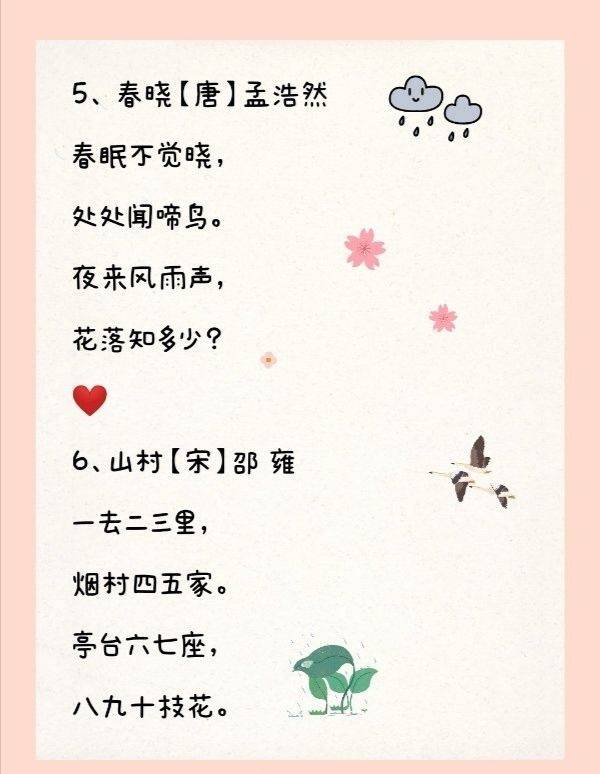 5、春晓【唐】孟浩然
春眠不觉晓，
处处闻啼鸟。
夜来风雨声，
花落知多少？
6、山村【宋】邵 雍
一去二三里，
烟村四五家。
亭台六七座，
八九十枝花。